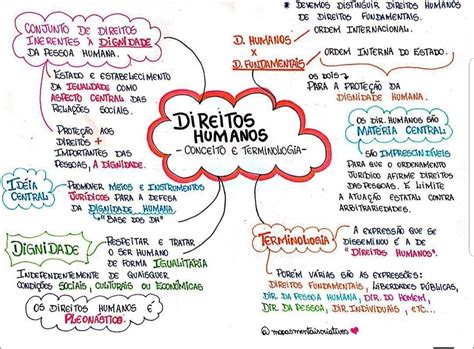 * DEVEMOS DISTINGUIR DIREITOS HUMANOS
DE DIREITOS FUNDAMENTAIS.
CONJUNTO DE DIREITOS
INERENTES À DIGNIDADE
DA PESSOA HUMANA.
ESTADO E ESTABELECIMENTO
DA IGUALDADE COMO
ASPECTO CENTRAL DAS
RELAÇÕES SOCIAIS.
PROTEÇÃO AOS
DIREITOS +
IMPORTANTES DAS
PESSOAS, A DIGNIDADE.
ORDEM INTERNACIONAL.
D. HUMANOS
X
D. FUNDAMENTAIS
ORDEM INTERNA DO ESTADO.
OS DOIS
PARA A PROTEÇÃO DA
DIGNIDADE HUMANA.
DIREITOS
HUMANOS
- CONCEITO E TERMINOLOGIA -
OS DIR. HUMANOS SÃO
MATÉRIA CENTRAL:
SÃO IMPRESCINDÍVEIS
PARA QUE O ORDENAMENTO
JURÍDICO AFIRME DIREITOS
DAS PESSOAS, E LIMITE
A ATUAÇÃO ESTATAL CONTRA
ARBITRARIEDADES.
IDÉIA
CENTRAL:
PROMOVER MEIOS E INSTRUMENTOS
JURÍDICOS PARA A DEFESA
DA DIGNIDADE HUMANA
"BASE DOS DH"
DIGNIDADE
RESPEITAR E TRATAR
O SER HUMANO
DE FORMA IGUALITÁRIA
INDEPENDENTEMENTE DE QUAISQUER
CONDIÇÕES SOCIAIS, CULTURAIS OU ECONÔMICAS
OS DIREITOS HUMANOS É
PLEONÁSTICO.
TERMINOLOGIA
A EXPRESSÃO QUE SE
DISSEMINOU É A DE
"DIREITOS HUMANOS".
PORÉM VÁRIAS SÃO AS EXPRESSÕES:
DIREITOS FUNDAMENTAIS, LIBERDADES PÚBLICAS,
DIR. DA PESSOA HUMANA, DIR. DO HOMEM,
DIR. DA PESSOA, DIR. INDIVIDUAIS, ETC...
@mapasmentaiscriativos